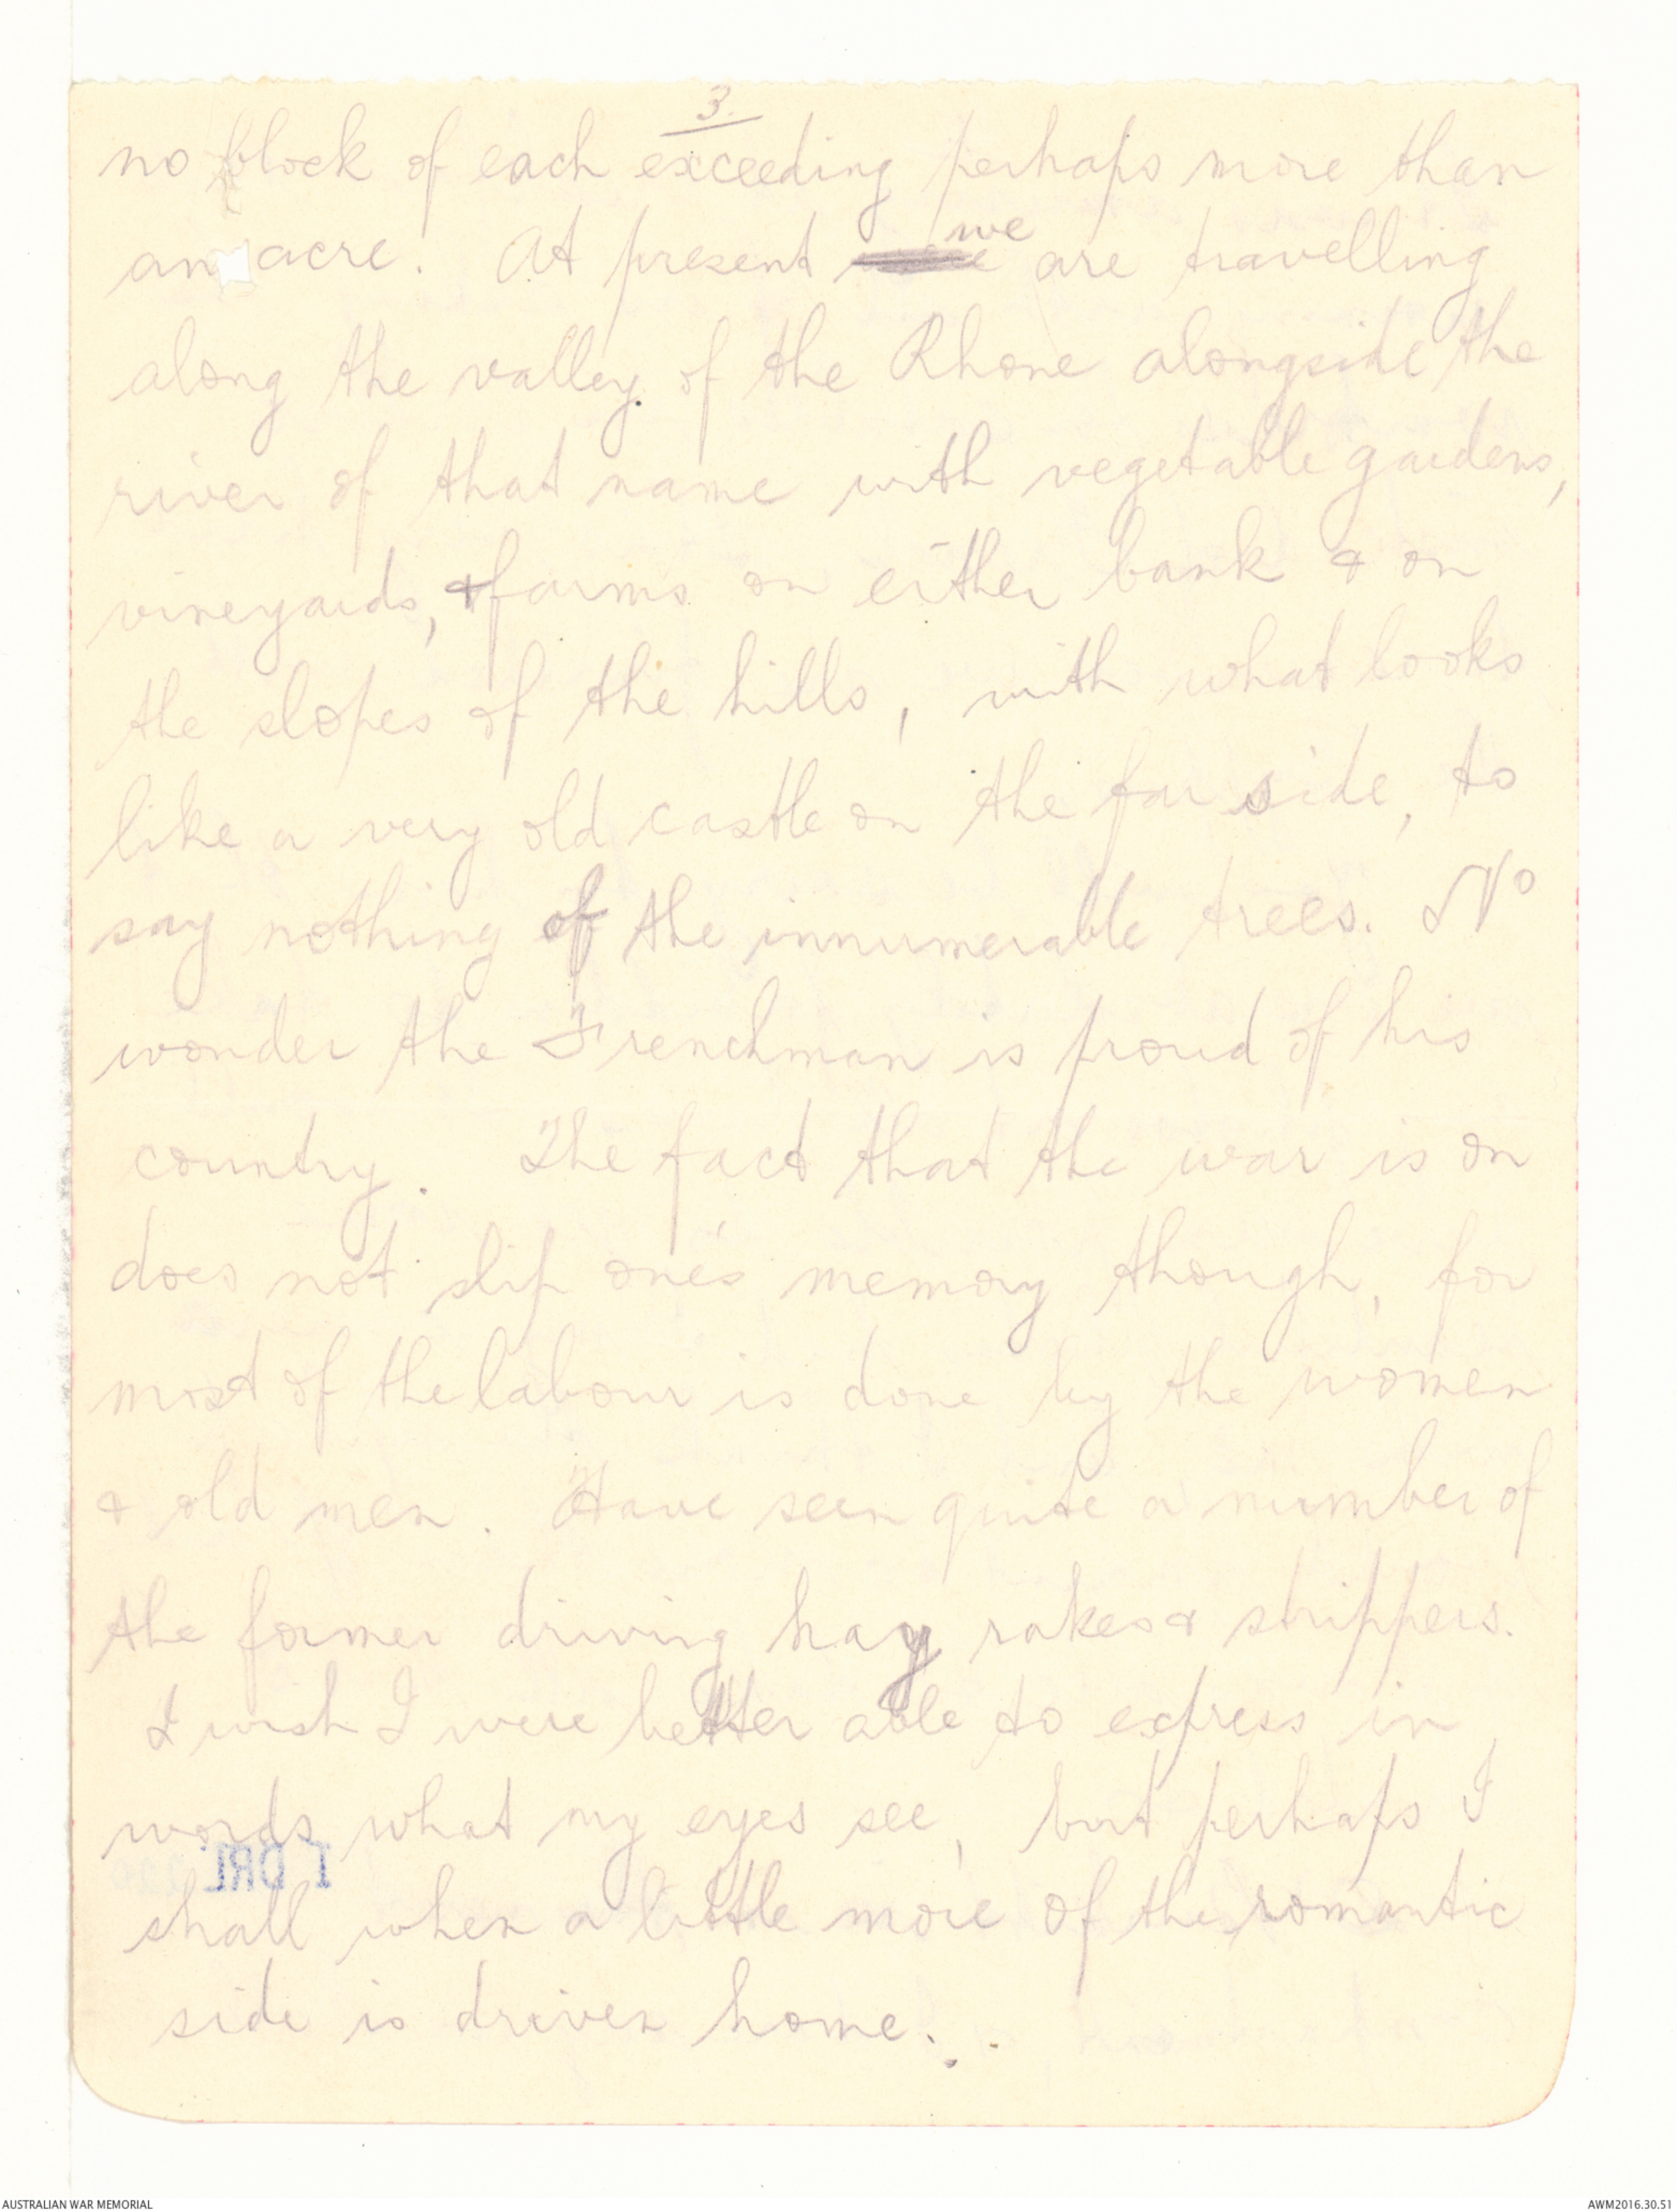 3.
no block of each exceeding perhaps more than
an acre. At present we are travelling
along the valley of the Rhone alongside the
river of that name with vegetable gardens,
vineyards, & farms on either bank & on
the slopes of the hills, with what looks
like a very old castle on the far side, to
say nothing of the innumerable trees. No
wonder the Frenchman is proud of his
country. The fact that the war is on
does not slip one's memory though, for
most of the labour is done by the women
& old men. Have seen quite a number of
the former driving hay rakes & strippers.
I wish I were better able to express in
words what my eyes see, but perhaps I
1 DRL
shall when a little more of the romantic
side is driven home.
AUSTRALIAN WAR MEMORIAL
AWM2016.30.51